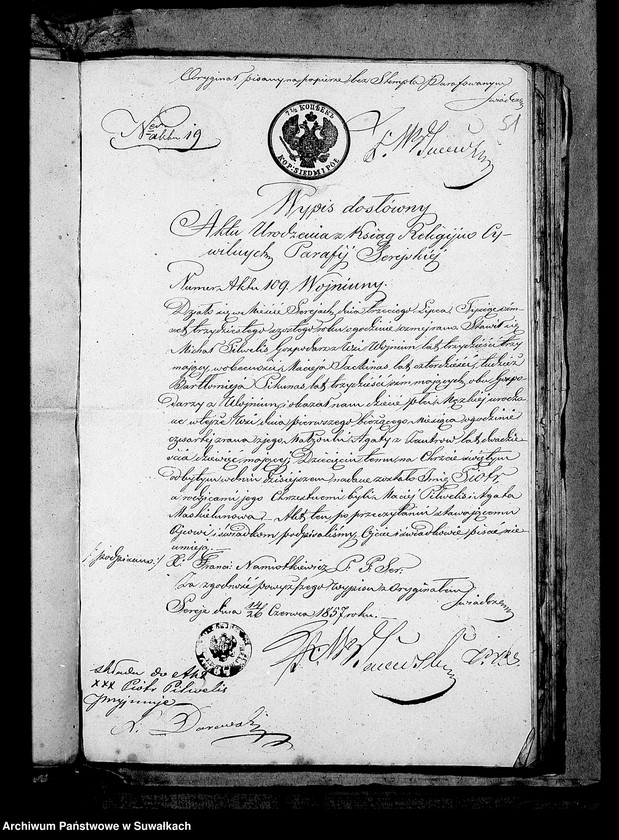 Oryginał pisany na papierze bez Stempla Parafowanym
Świadczę
51
Ner aktu 19
7½ КОПѢЕКЪ
KOP. SIEDM I PÓŁ
Wypis dosłowny
Aktu Urodzenia z Ksiąg Religijno Cy-
wilnych Parafij Serejskiéj
Numer Aktu 109. Wojniuny.
Działo się w Mieście Serejach, dnia trzeciego Lipca Tysiąc óśm-
set trzydziestego szóstego roku o godzinie ósmej rano. Stawił się
Michał Pilwelis Gospodarz z Wsi Wojniun lat trzydzieści trzy
mający w obecności Macieja lat czterdzieści, tudzież
Bartłomieja lat trzydzieści óśm mających, obu Gospo-
darzy z Wojniun, i okazał nam dziecie płci Męzkiéj urodzo-
ne w tejże Wsi dnia pierwszego bieżącego Miesiąca o godzinie
czwartej zrana z jego Małżonki Agaty z lat dwadzie-
ścia dziewięć mającéj. Dziecięciu temu na Chrzcie świętym
odbytym w dniu dzisiejszem nadane zostało Imię Piotr,
a rodzicami jego Chrzestnemi byli Maciej Pilwelis i Agata
Akt ten po przeczytaniu stawającemu
Ojcowi i świadkom podpisaliśmy, Ojciec i świadkowie pisać nie
umieją.
/:podpisano:/ X. Franci: Namiotkiewicz P. P. Ser.
Za zgodność powyższego Wypisu z Oryginałem
Świadczę
Sereje dnia 14/26 Czerwca 1857 roku.
składa do Akt
xxx Piotr Pilwelis
przyjmuje
Archiwum Państwowe w Suwałkach